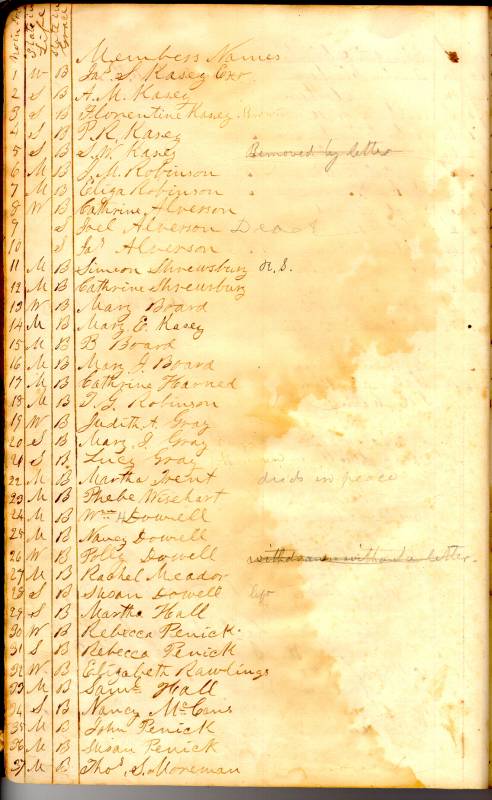 Members Names
1 W B Jas. S. Kasey Exr.
2 S B A. M. Kasey
3 S B Florentine Kasey
4 S B P. R. Kasey
5 S B S. W. Kasey Removed by letter
6 M B J. M. Robinson
7 M B Eliza Robinson
8 W B Cathrine Alverson
9 S Joel Alverson Dead
10 S Jas Alverson
11 M B Simeon Shrewsbury R. S.
12 M B Cathrine Shrewsbury
13 W B Mary Board
14 M B Mary E. Kasey
15 M B B Board
16 M B Mary J. Board
17 M B Cathrine Harned
18 M B T. G. Robinson
19 W B Judith A. Gray
20 S B Mary J. Gray
21 S B Lucy Gray
22 M B Martha Trent dieds in peace
23 M B Phebe Wisehart
24 M B Wm H Dowell
25 M B Nancy Dowell
26 W B Polly Dowell withdrawn without a letter.
27 M B Rachel Meador
28 S B Susan Dowell
29 S B Martha Hall
30 W B Rebecca Penick
31 S B Rebecca Penick
32 W B Elizabeth Rawlings
33 M B Saml Hall
34 S B Nancy McCans
35 M B John Penick
36 M B Susan Penick
37 M B Thos. S. Moreman